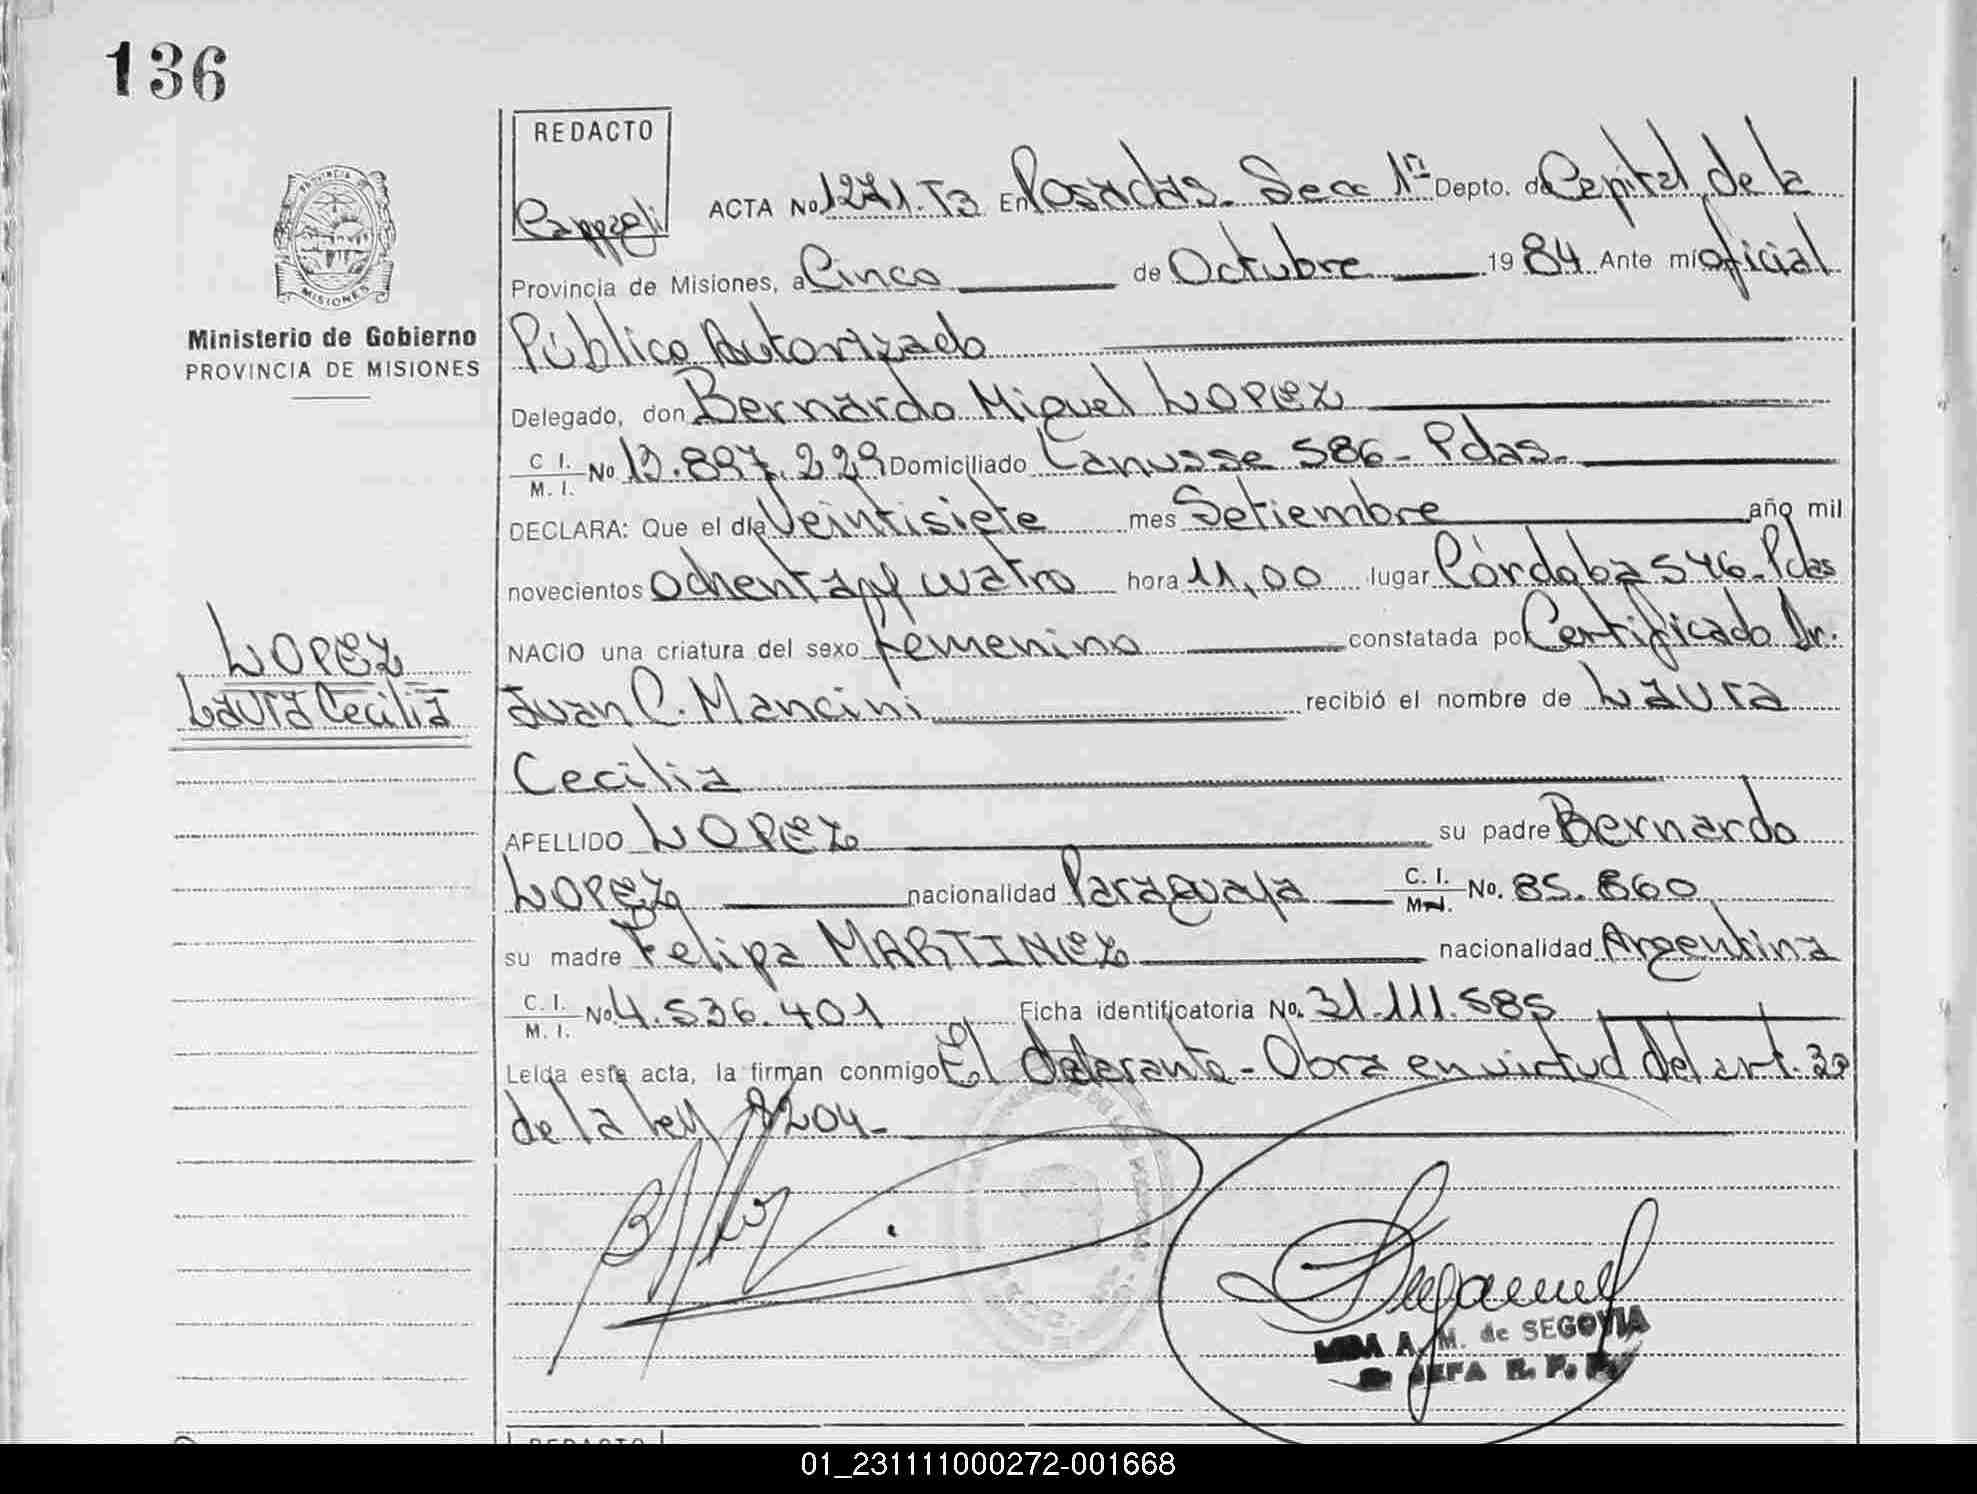 136
REDACTO
PROVINCIA DE
MISIONES
Ministerio de Gobierno
PROVINCIA DE MISIONES
LOPEZ
Laura Cecilia
ACTA No 1271. T3 En Posadas. Secc 1ª Depto. de Capital, de la
Provincia de Misiones, a Cinco de Octubre 19 84 Ante mi oficial
Público Autorizado
Delegado, don Bernardo Miguel LOPEZ
C I. M. I. No 13.897.229 Domiciliado Lanusse 586 - Pdas.
DECLARA: Que el día Veintisiete mes Setiembre año mil
novecientos ochenta y cuatro hora 11,00 lugar Córdoba 546 - Pdas
NACIO una criatura del sexo femenino constatada por Certificado Dr.
Juan C. Mancini recibió el nombre de Laura
Cecilia
APELLIDO LOPEZ su padre Bernardo
LOPEZ nacionalidad Paraguaya C. I. M. I. No. 85.860
su madre Felipa MARTINEZ nacionalidad Argentina
C. I. M. I. No 4.536.401 Ficha identificatoria No. 31.111.585
Leída esta acta, la firman conmigo El delarante - Obra en virtud del art. 30
de la ley 8204-
A. M. de SEGOVIA
JEFA
REDACTO
01_231111000272-001668